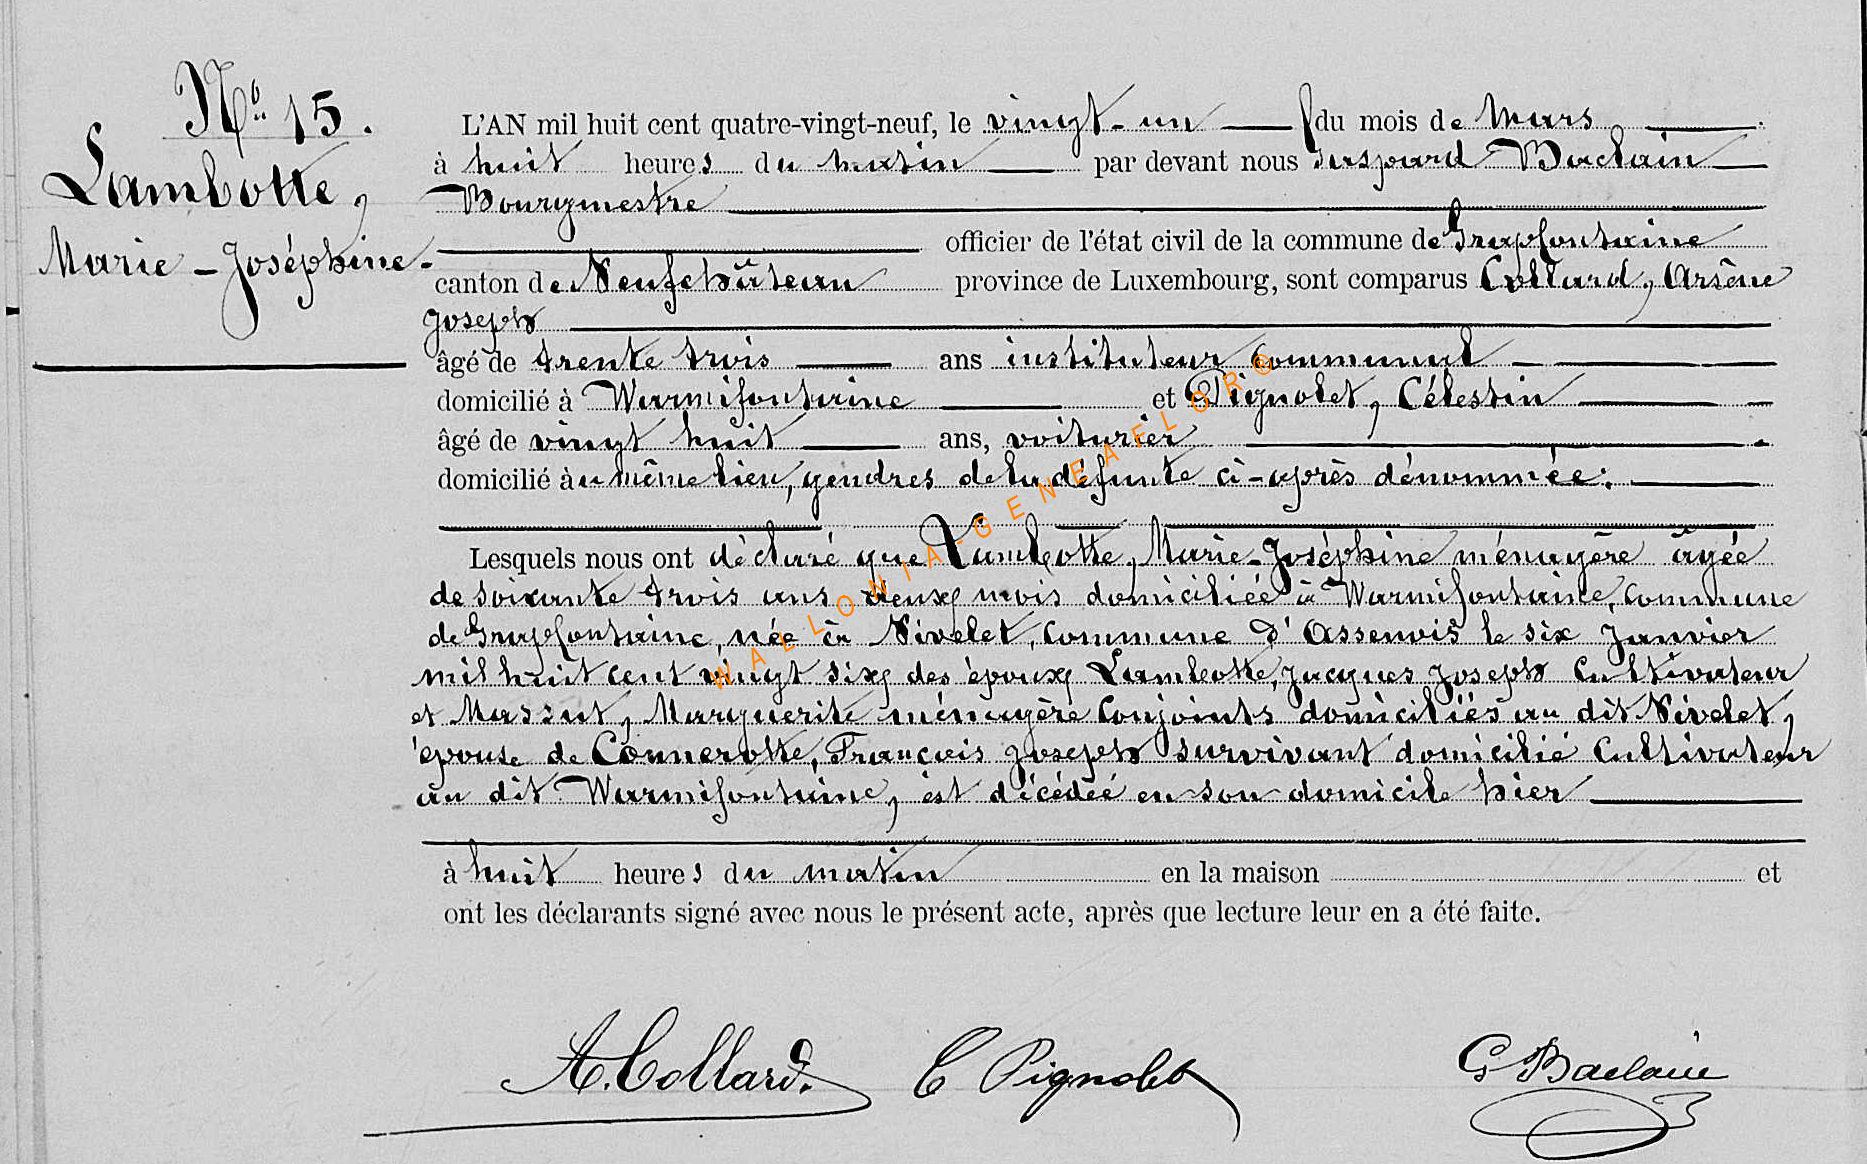 No 15.
Lambotte,
Marie-Joséphine.
L'AN mil huit cent quatre-vingt-neuf, le vingt-un du mois de Mars
à huit heures du matin par devant nous Gaspard Baclain
Bourgmestre
officier de l'état civil de la commune de Grapfontaine
canton de Neufchâteau province de Luxembourg, sont comparus Collard, Arsène
Joseph
âgé de trente trois ans instituteur communal
domicilié à Warmifontaine et Pignolet, Célestin
âgé de vingt huit ans, voiturier
domicilié au même lieu, gendres de la défunte ci-après dénommée:
Lesquels nous ont déclaré que Lambotte, Marie-Joséphine ménagère âgée
de soixante trois ans deux mois domiciliée à Warmifontaine, commune
de Grapfontaine, née à Nivelet, commune d'Assenois le six Janvier
mil huit cent vingt six des époux Lambotte, Jacques Joseph Cultivateur
et Massut, Marguerite ménagère Conjoints domiciliés au dit Nivelet,
épouse de Connerotte, François Joseph survivant domicilié Cultivateur
au dit Warmifontaine, est décédée en son domicile hier
à huit heures du matin en la maison et
ont les déclarants signé avec nous le présent acte, après que lecture leur en a été faite.
A. Collard. C Pignolet G Baclain
WALLONIA-GENEAFLOR®